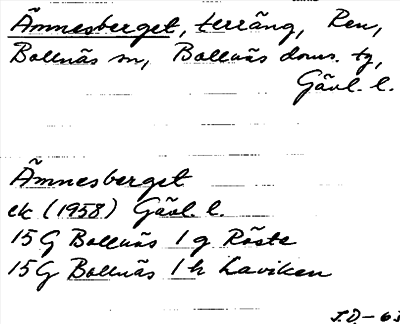 Ämnesberget, terräng, Ren,
Bollnäs sn, Bollnäs doms. tg,
Gävl. l.
Ämnesberget
ek (1958) Gävl. l.
15G Bollnäs 1 g Röste
15G Bollnäs 1 h Laviken
J.D.-63